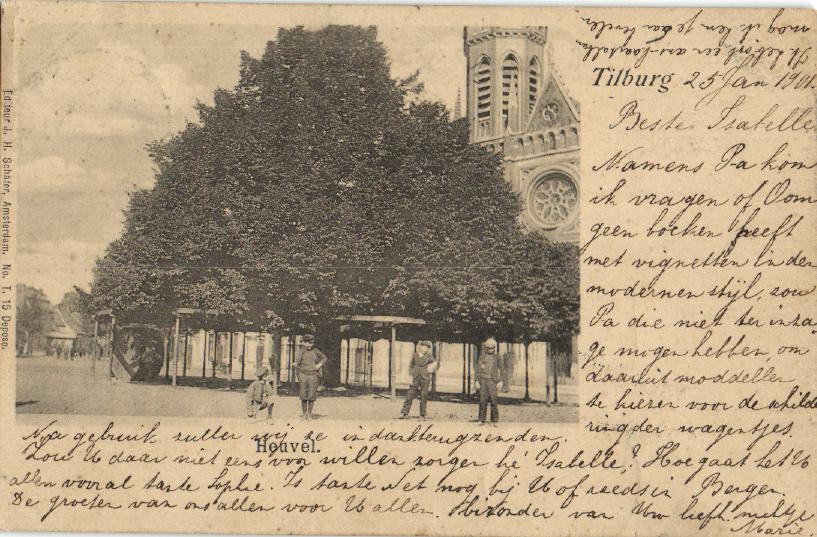 Tilburg 25 Jan 1901.
Beste Isabelle
Namens Pa kom
ik vragen of Oom
geen boeken heeft
met vignetten in den
modernen stijl, zou
Pa die niet ter inza
ge mogen hebben, om
daaruit moddellen
te kiezen voor de schilde
ring der wagentjes.
Na gebruik zullen wij ze in dank terugzenden.
Zou U daar niet eens voor willen zorgen hè Isabelle? Hoe gaat het U
allen vooral tante Sophie. Is tante Net nog bij U of reeds in Bergen.
De groeten van ons allen voor U allen. bizonder van Uw liefh. nichtje
Marie.
Heuvel.
Editeur J. H. Schäfer, Amsterdam. No. T. 15 Deposé.